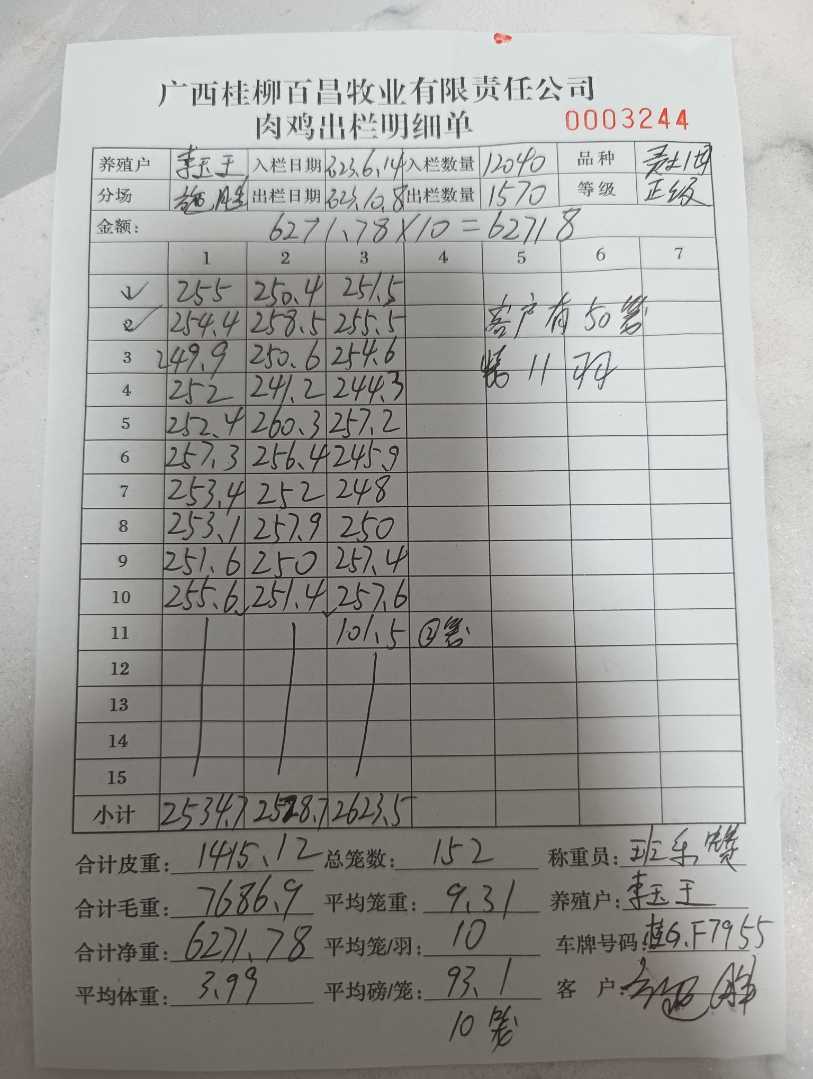 广西桂柳百昌牧业有限责任公司
肉鸡出栏明细单 0003244
养殖户 李玉王 入栏日期 023.6.14 入栏数量 12040 品种
分场 出栏日期 023.10.8 出栏数量 1570 等级 正级
金额: 6271.78×10=62718
1 2 3 4 5 6 7
1 255 250.4 251.5
2 254.4 258.5 255.5 客户有50笼
3 249.9 250.6 254.6 11羽
4 252 241.2 244.3
5 252.4 260.3 257.2
6 257.3 256.4 245.9
7 253.4 252 248
8 253.1 257.9 250
9 251.6 250 257.4
10 255.6 251.4 257.6
11 101.5 ②笼
12
13
14
15
小计 2534.7 2528.7 2623.5
合计皮重: 1415.12 总笼数: 152 称重员: 班乐赞
合计毛重: 7686.9 平均笼重: 9.31 养殖户: 李玉王
合计净重: 6271.78 平均笼/羽: 10 车牌号码: 桂G.F7955
平均体重: 3.99 平均磅/笼: 93.1 客 户:
10笼